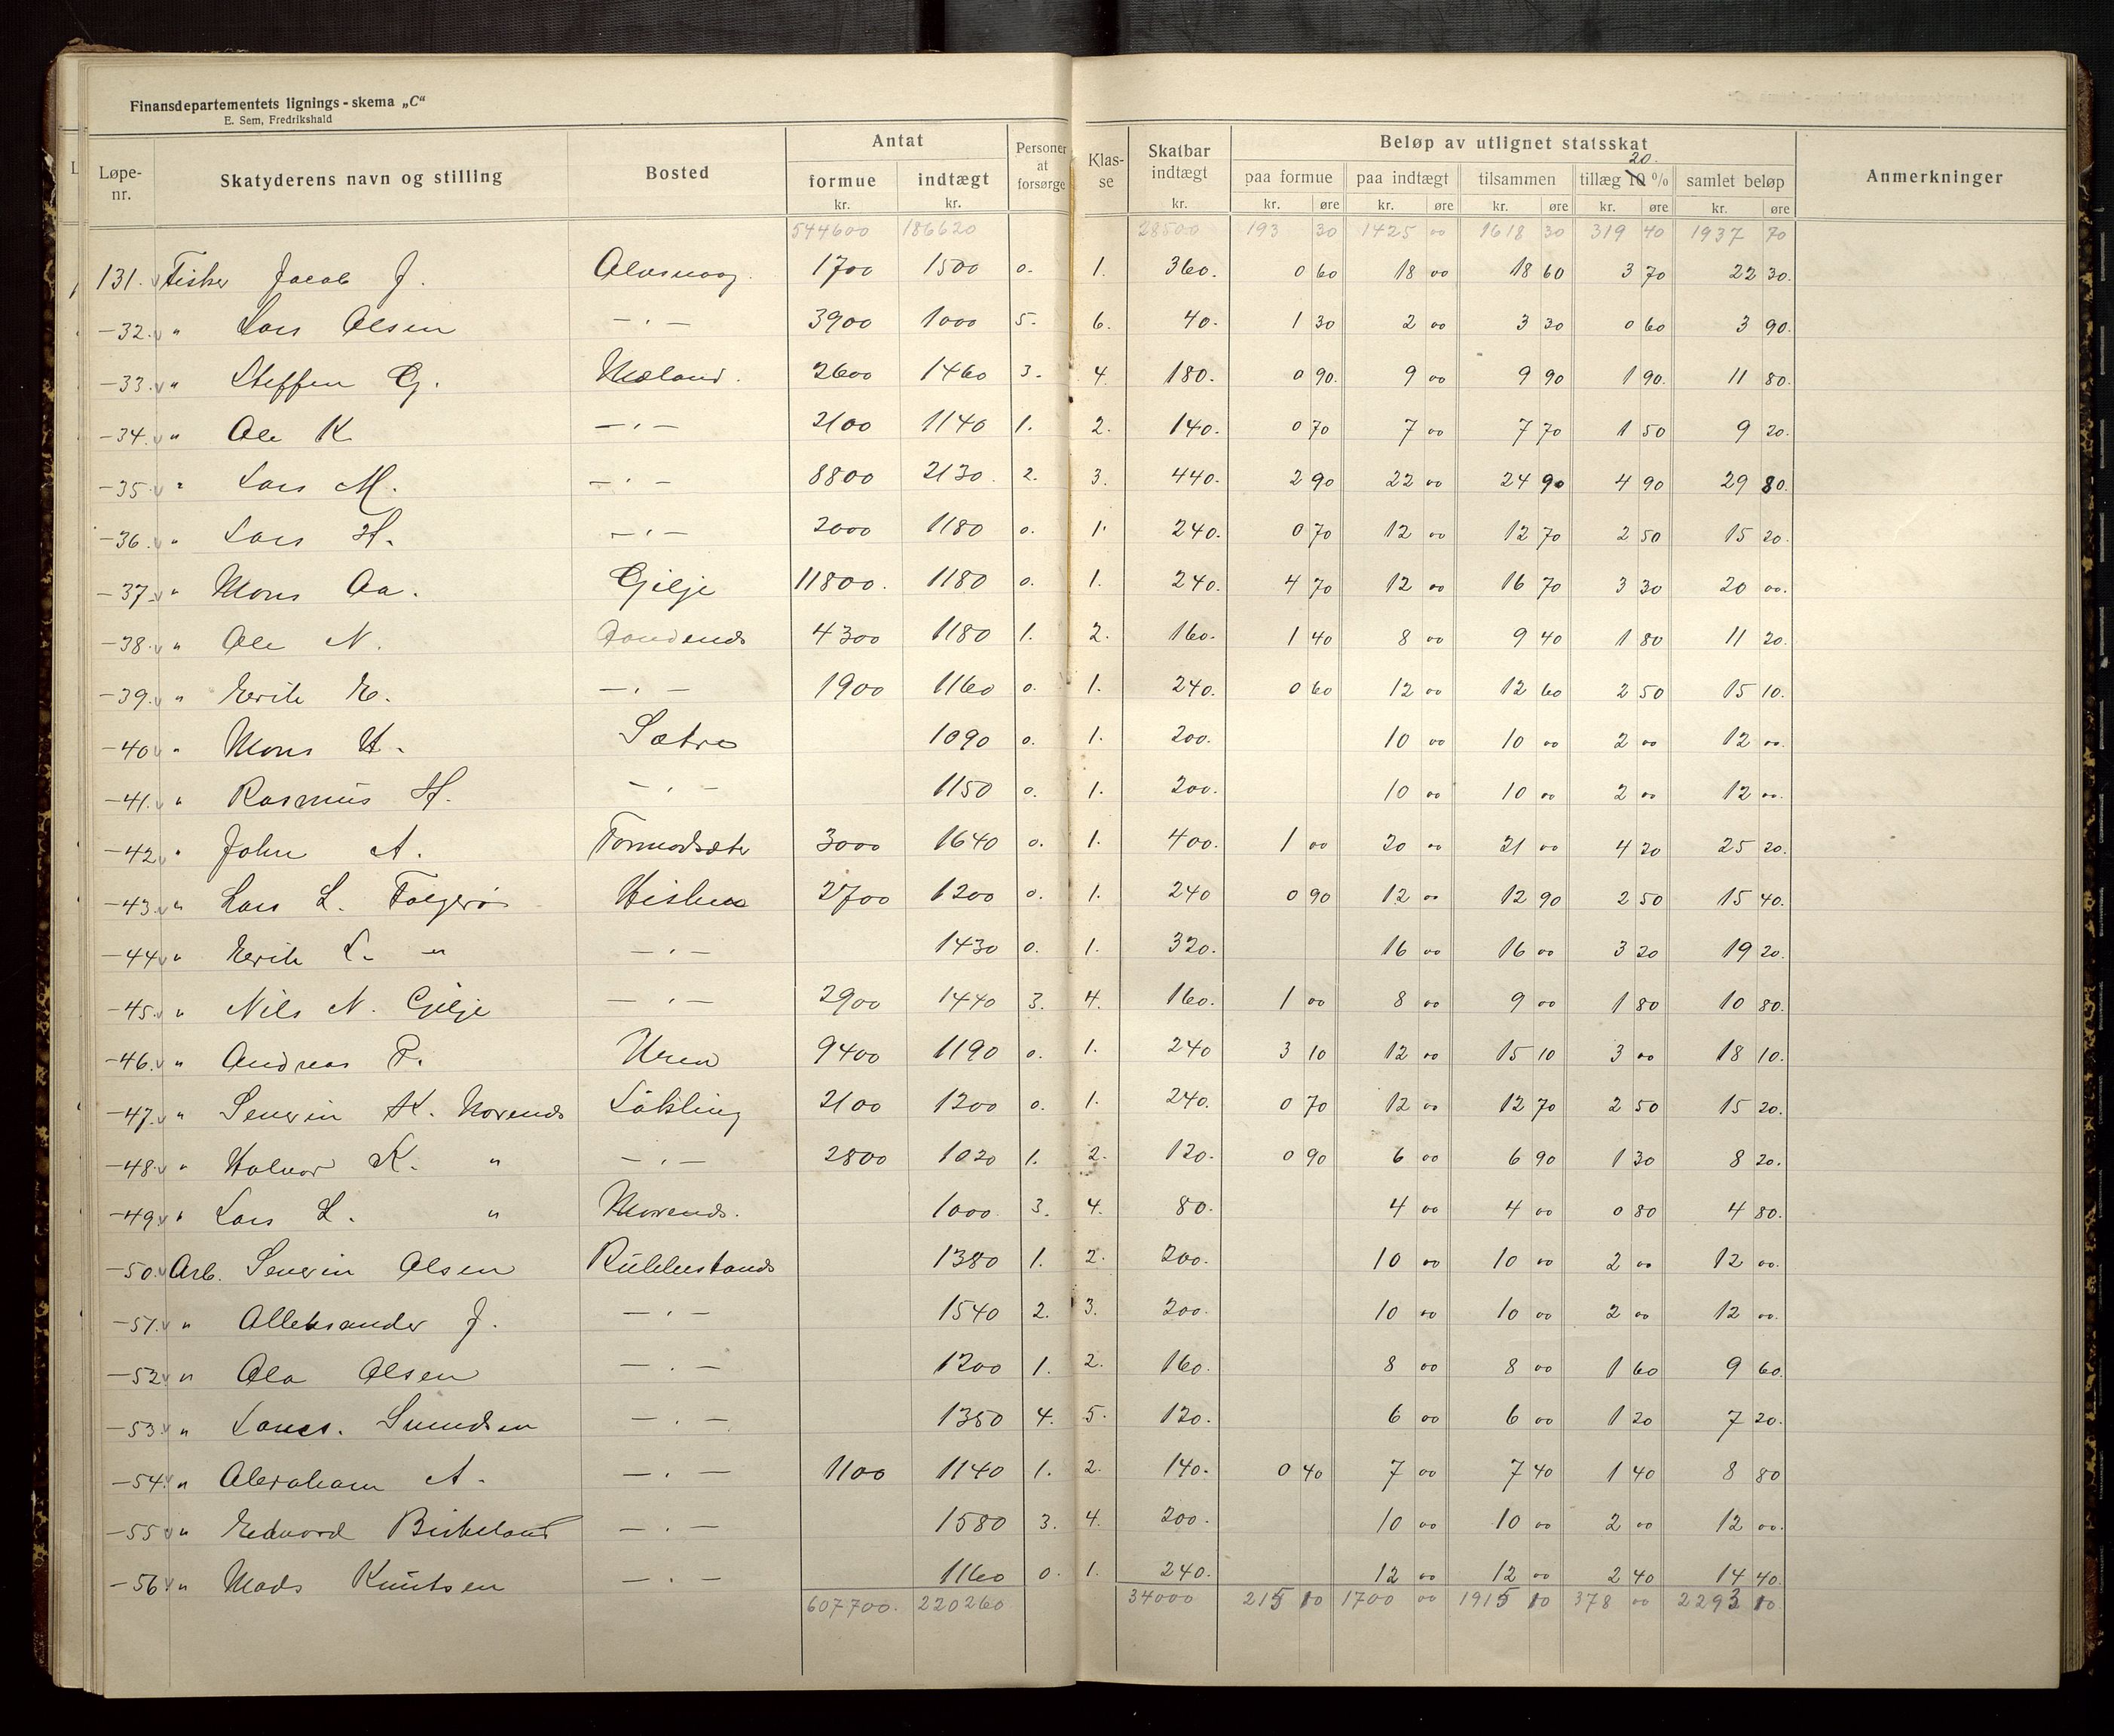 Finansdepartementets lignings-skema „C“
E. Sem, Fredrikshald
Løpe-nr. Skatyderens navn og stilling Bosted Antat formue kr. indtægt kr. Personer at forsørge Klas-se Skatbar indtægt kr. Beløp av utlignet statsskat paa formue kr. øre paa indtægt kr. øre tilsammen kr. øre tillæg 10 20. % kr. øre samlet beløp kr. øre Anmerkninger
544600 186620 28500 193 30 1425 00 1618 30 319 40 1937 70
131. Fisker Jacob J. Alvsvaag 1700 1500 0. 1. 360. 0 60 18 00 18 60 3 70 22 30.
-32. " Lars Olsen — " — 3900 1000 5. 6. 40. 1 30 2 00 3 30 0 60 3 90.
-33. " Steffen G. Mæland. 2600 1460 3. 4. 180. 0 90. 9 00 9 90 1 90. 11 80.
-34. " Ole K — " — 2100 1140 1. 2. 140. 0 70 7 00 7 70 1 50 9 20.
-35. " Lars M. — " — 8800 2130. 2. 3. 440. 2 90 22 00 24 90 4 90 29 80.
-36. " Lars H. — " — 2000 1180 0. 1. 240. 0 70 12 00 12 70 2 50 15 20.
-37. " Mons Aa. Gilje 11800. 1180 0. 1. 240. 4 70 12 00 16 70 3 30 20 00.
-38. " Ole N. 4300 1180 1. 2. 160. 1 40 8 00 9 40 1 80 11 20.
-39. " Erik E. — " — 1900 1160 0. 1. 240. 0 60 12 00 12 60 2 50 15 10.
-40. " Mons H. Sætre 1090 0. 1. 200. 10 00 10 00 2 00 12 00.
-41. " Rasmus H. — " — 1150 0. 1. 200. 10 00 10 00 2 00 12 00.
-42. " John A. Tormodsæter 3000 1640 0. 1. 400. 1 00 20 00 21 00 4 20 25 20.
-43. " Lars L. Folgerø Hisken 2700 1200 0. 1. 240 0 90 12 00 12 90 2 50 15 40.
-44. " Erik L. " — " — 1430 0. 1. 320. 16 00 16 00 3 20 19 20.
-45. " Nils N. Gilje — " — 2900 1440 3. 4. 160. 1 00 8 00 9 00 1 80 10 80.
-46. " Andreas P. Uren 9400 1190 0. 1. 240 3 10 12 00 15 10 3 00 18 10.
-47. " Severin K. Løkling 2100 1200 0. 1. 240. 0 70 12 00 12 70 2 50 15 20.
-48. " Halvor K. " — " — 2800 1020 1. 2. 120. 0 90 6 00 6 90 1 30 8 20.
-49. " Lars L. " 1000 3. 4. 80. 4 00 4 00 0 80 4 80.
-50. Arb. Severin Olsen Rubbestands 1380 1. 2. 200. 10 00 10 00 2 00 12 00.
-51. " Alleksander J. — " — 1540 2. 3. 200. 10 00 10 00 2 00 12 00.
-52. " Ola Olsen — " — 1200 1. 2. 160. 8 00 8 00 1 60 9 60.
-53. " Svendsen — " — 1350 4. 5. 120. 6 00 6 00 1 20 7 20.
-54. " Abraham A. — " — 1100 1140 1. 2. 140. 0 40 7 00 7 40 1 40 8 80
-55. " Edvard Birkeland — " — 1580 3. 4. 200. 10 00 10 00 2 00 12 00.
-56. " Mads Knutsen — " — 1160 0. 1. 240. 12 00 12 00 2 40 14 40.
607700. 220260 34000 215 10 1700 00 1915 10 378 00 2293 10